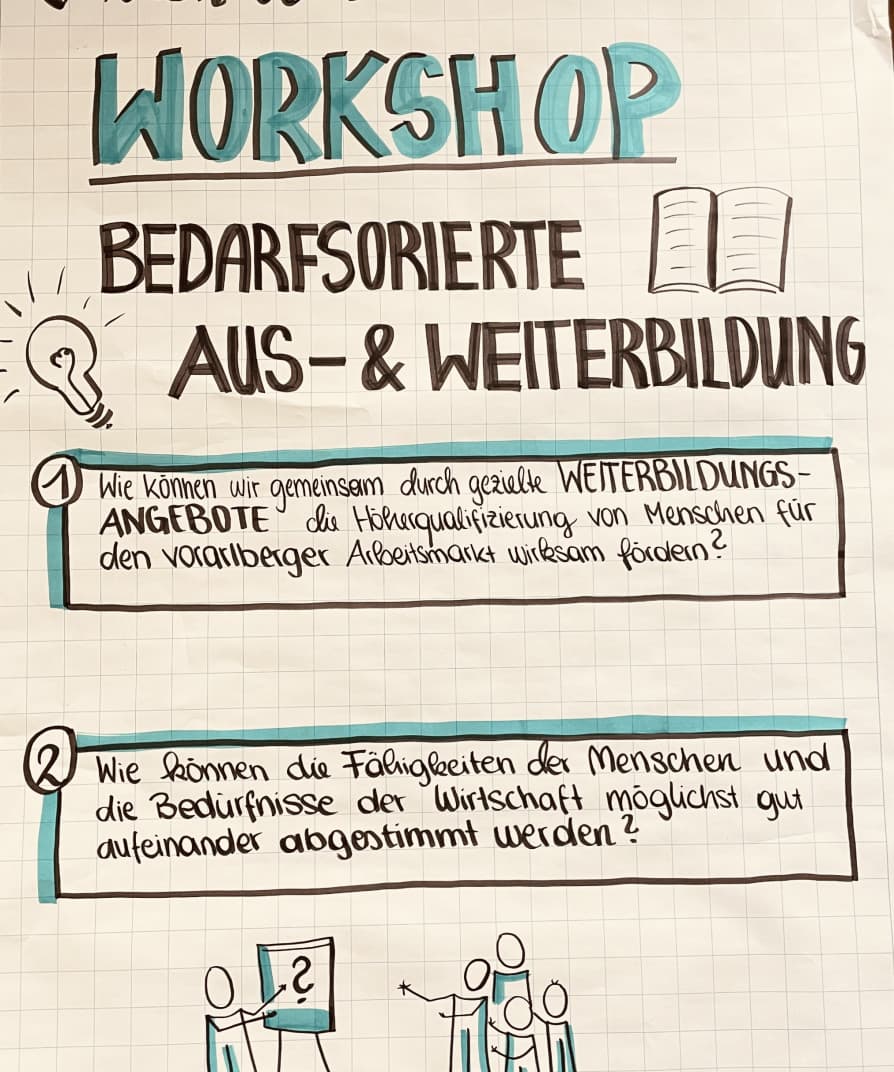 WORKSHOP
BEDARFSORIERTE
AUS- & WEITERBILDUNG
1 Wie können wir gemeinsam durch gezielte WEITERBILDUNGS-
ANGEBOTE die Höherqualifizierung von Menschen für
den vorarlberger Arbeitsmarkt wirksam fördern?
2 Wie können die Fähigkeiten der Menschen und
die Bedürfnisse der Wirtschaft möglichst gut
aufeinander abgestimmt werden?
?